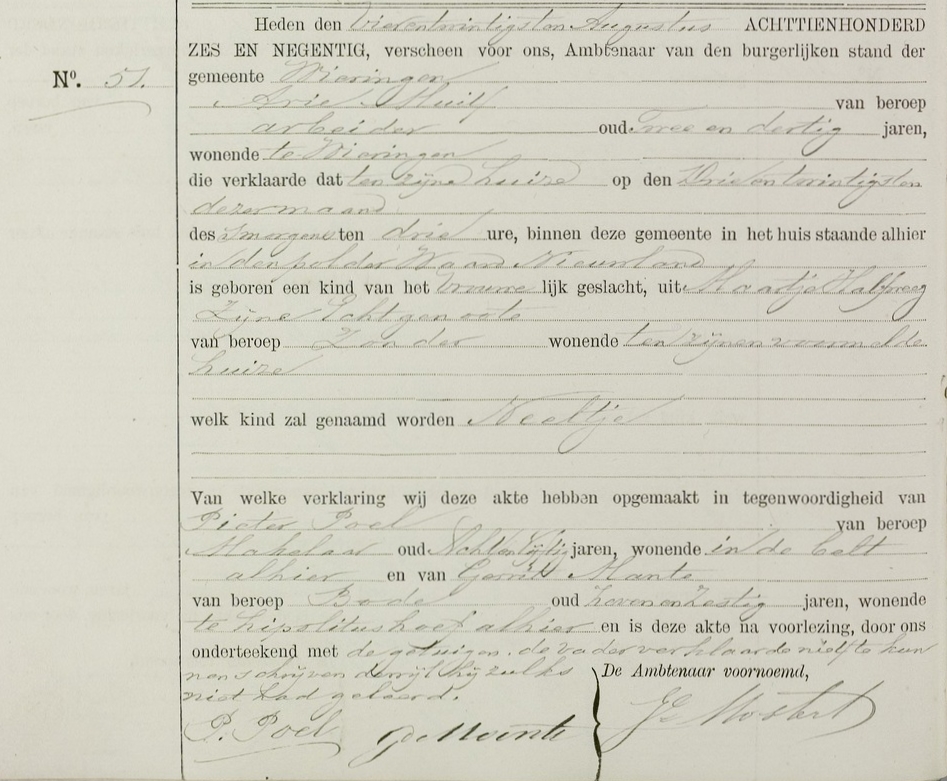 Heden den Vierentwintigsten Augustus ACHTTIENHONDERD
ZES EN NEGENTIG, verscheen voor ons, Ambtenaar van den burgerlijken stand der
gemeente Wieringen
No. 51.
Arie van beroep
arbeider oud Twee en dertig jaren,
wonende te Wieringen
die verklaarde dat ten zijne huize op den Drieentwintigsten
dezer maand
des Smorgens ten drie ure, binnen deze gemeente in het huis staande alhier
in den polder Waard Nieuwland
is geboren een kind van het Vrouwe lijk geslacht, uit Maartje Halfweeg
Zijne Echtgenoote
van beroep Zonder wonende ten zijnen voormelde
huize
welk kind zal genaamd worden Neeltje
Van welke verklaring wij deze akte hebben opgemaakt in tegenwoordigheid van
Pieter Poel van beroep
Makelaar oud jaren, wonende in de belt
alhier en van Gerrit
van beroep Bode oud Zevenenzestig jaren, wonende
te hipolitushoef alhier en is deze akte na voorlezing, door ons
onderteekend met de getuigen. de vader verklaarde niet te kun
nen schrijven derwijl hij zulks
niet had geleerd.
De Ambtenaar voornoemd,
P. Poel
Mostert